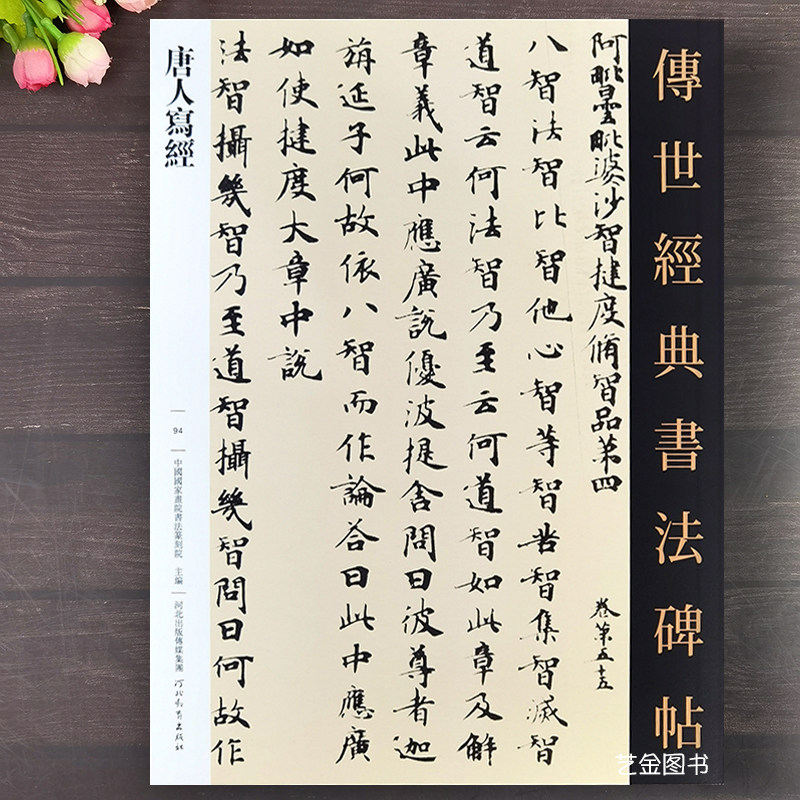 傳世經典書法碑帖
阿毗曇毗婆沙智揵度脩智品第四
卷第五十五
八智法智比智他心智等智苦智集智滅智
道智云何法智乃至云何道智如此章及解
章義此中應廣說優波提舍問曰彼尊者迦
旃延子何故依八智而作論答曰此中應廣
如使揵度大章中說
法智攝幾智乃至道智攝幾智問曰何故作
唐人寫經
94
中國國家畫院書法篆刻院 主編
河北出版傳媒集團 河北教育出版社
艺金图书